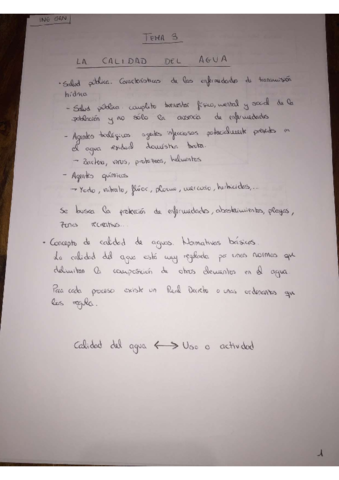 TEMA 3
LA CALIDAD DEL AGUA
· Salud pública. Características de las enfermedades de transmisión
hídrica
- Salud pública: completo bienestar físico, mental y social de la
población y no sólo la ausencia de enfermedades
- Agentes biológicos: agentes infecciosos potencialmente presentes en
el agua residual doméstica bruta.
→ Bacterias, virus, protozoos, helmintos
- Agentes químicos
→ Yodo, nitrato, flúor, plomo, mercurio, herbicidas, ...
Se busca la protección de enfermedades, abastecimientos, playas,
zonas recreativas.
· Concepto de calidad de aguas. Normativas básicas.
La calidad del agua está muy regulada por unas normas que
delimitan la composición de otros elementos en el agua.
Para cada proceso existe un Real Decreto o unas ordenanzas que
las regulan.
Calidad del agua ↔ Uso o actividad
1